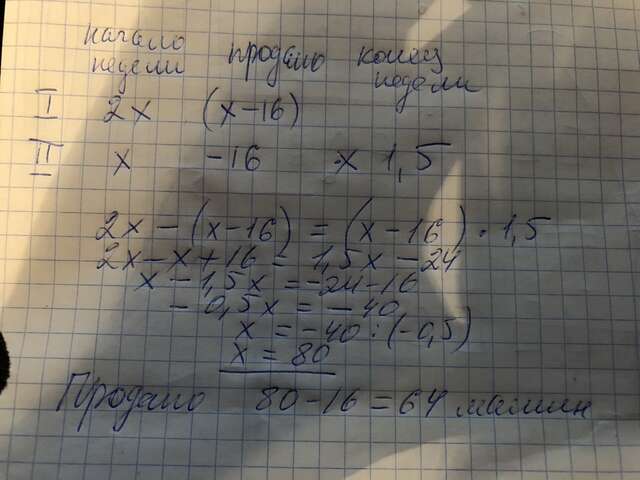 начало продано конец
недели недели
I 2x (x-16)
II x -16 x 1,5
2x - (x-16) = (x-16) · 1,5
2x-x+16 = 1,5x - 24
x - 1,5x = -24-16
- 0,5x = -40
x = -40 : (-0,5)
x = 80
Продано 80-16 = 64 машин